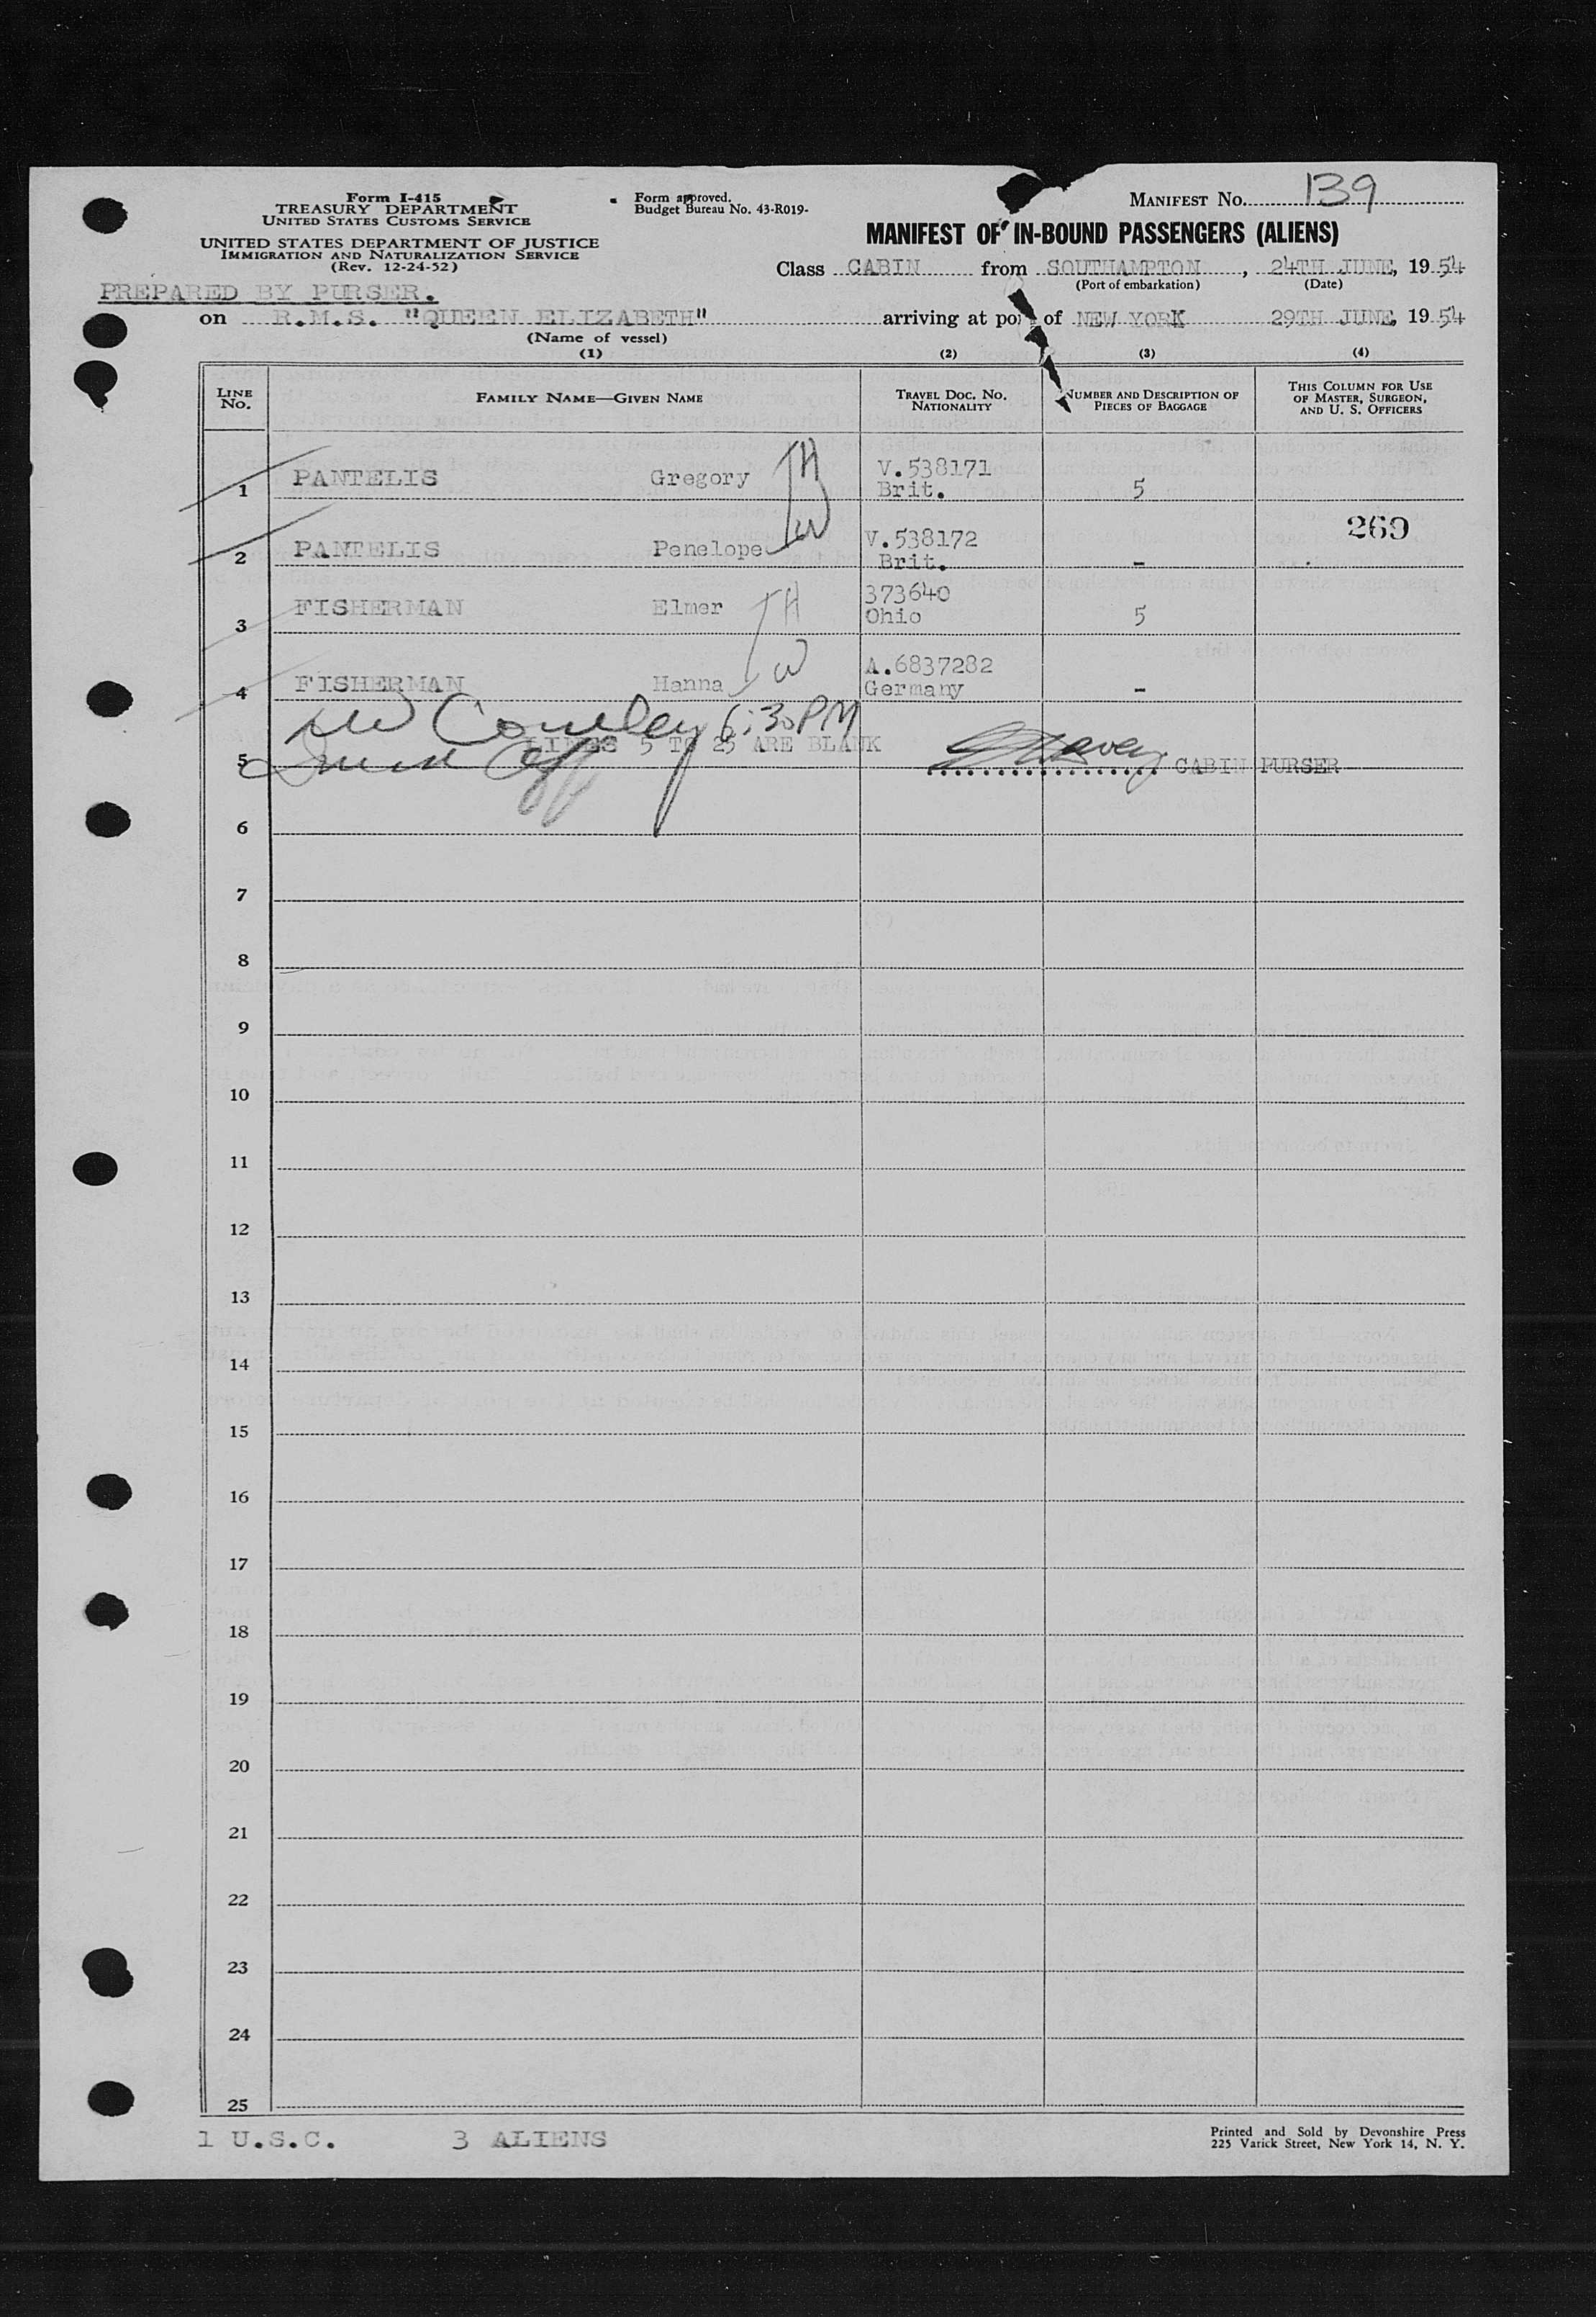 Form I-415
TREASURY DEPARTMENT
UNITED STATES CUSTOMS SERVICE
UNITED STATES DEPARTMENT OF JUSTICE
IMMIGRATION AND NATURALIZATION SERVICE
(Rev. 12-24-52)
Form approved.
Budget Bureau No. 43-R019-
MANIFEST No. 139
MANIFEST OF IN-BOUND PASSENGERS (ALIENS)
Class CABIN from SOUTHAMPTON, 24TH JUNE, 1954
(Port of embarkation) (Date)
PREPARED BY PURSER.
on R.M.S. "QUEEN ELIZABETH" arriving at port of NEW YORK 29TH JUNE, 1954
(Name of vessel)
(1) (2) (3) (4)
LINE No. FAMILY NAME—GIVEN NAME TRAVEL DOC. No. NATIONALITY NUMBER AND DESCRIPTION OF PIECES OF BAGGAGE THIS COLUMN FOR USE OF MASTER, SURGEON, AND U. S. OFFICERS
1 PANTELIS Gregory V.538171 Brit. 5
269
2 PANTELIS Penelope V.538172 Brit. -
3 FISHERMAN Elmer 373640 Ohio 5
4 FISHERMAN Hanna A.6837282 Germany -
6:30 PM
LINES 5 TO 25 ARE BLANK
5 CABIN PURSER
6
7
8
9
10
11
12
13
14
15
16
17
18
19
20
21
22
23
24
25
1 U.S.C. 3 ALIENS
Printed and Sold by Devonshire Press
225 Varick Street, New York 14, N. Y.